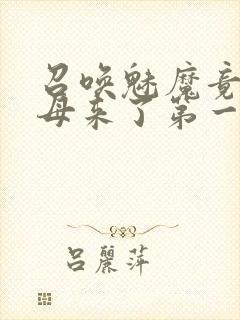 召唤魅魔竟
母来了第一
吕麗萍